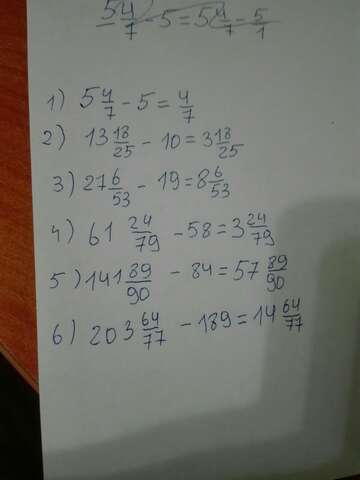 5 4/7 - 5 = 5 4/7 - 5/1
1) 5 4/7 - 5 = 4/7
2) 13 18/25 - 10 = 3 18/25
3) 27 6/53 - 19 = 8 6/53
4) 61 24/79 - 58 = 3 24/79
5) 141 89/90 - 84 = 57 89/90
6) 203 64/77 - 189 = 14 64/77